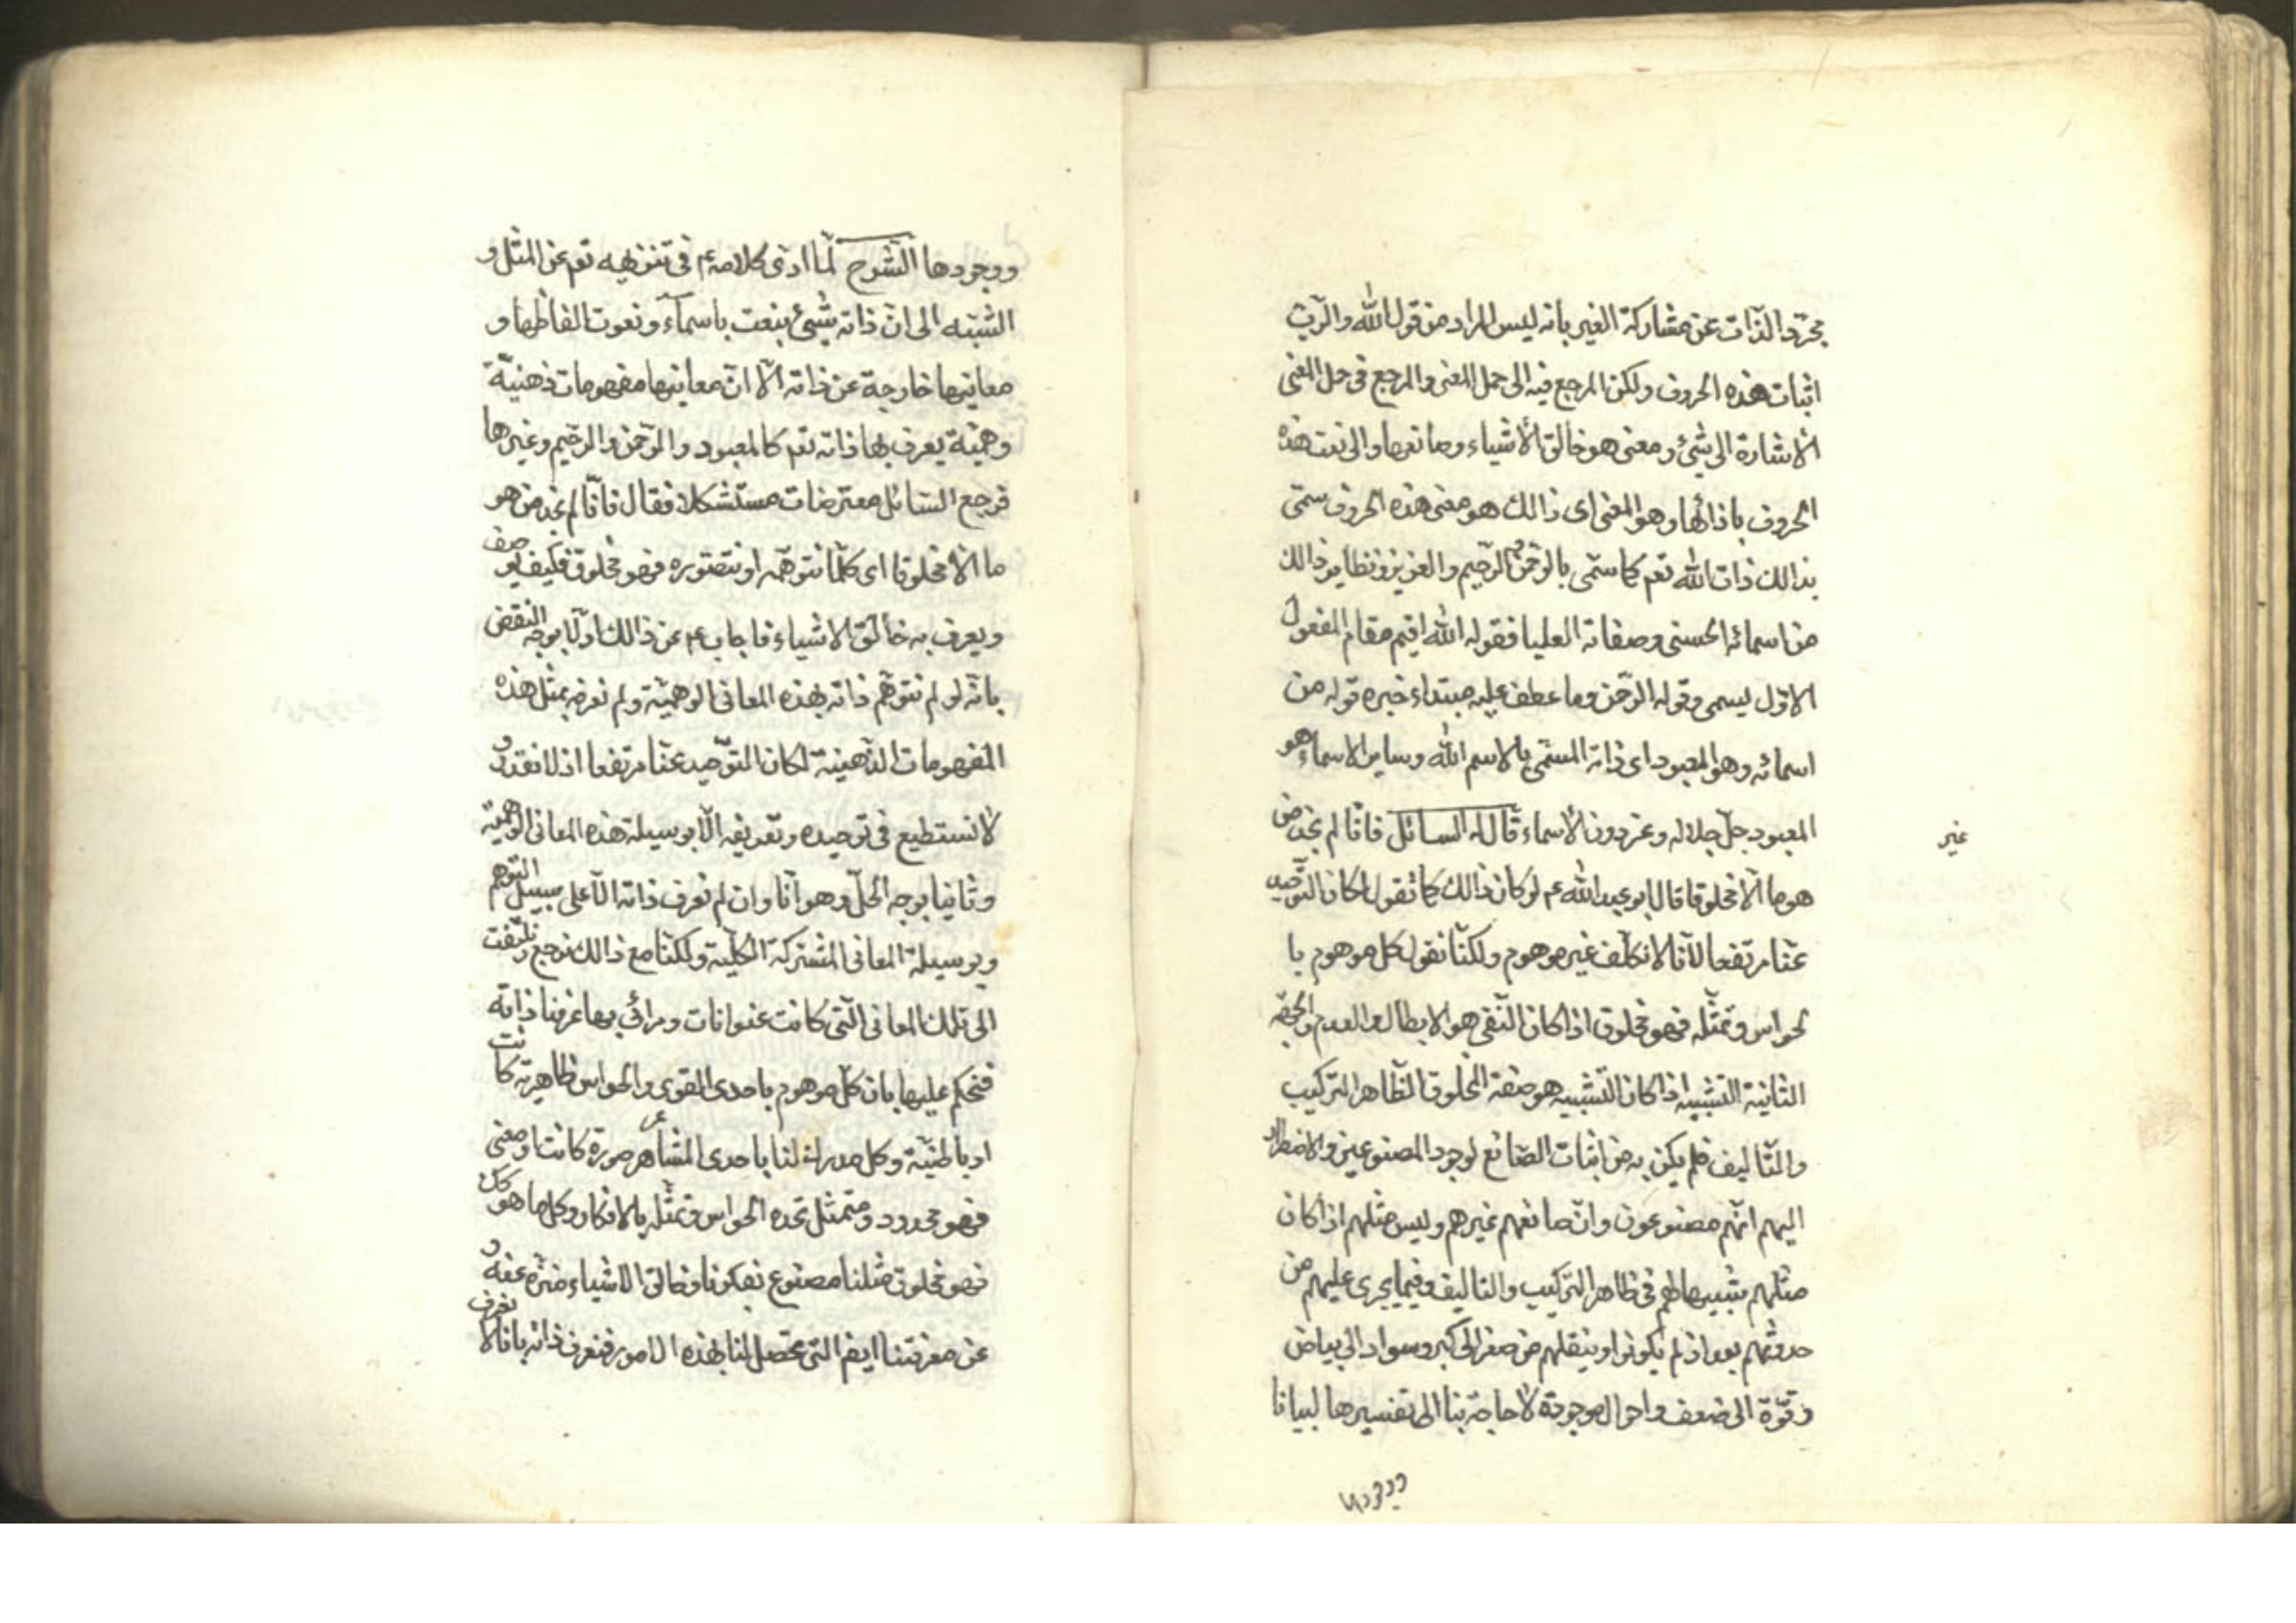 مجرّد الذّات عن مشاركة الغير بانه ليس المراد من قول الله والرّب
اثبات هذه الحروف ولكن المرجع فيه الى حمل المعنى والمرجع فى حل المعنى
الاشارة الى شئ ومعنى هو خالق الأشياء وصانعها والى نعت هذه
الحروف باذائها وهو المعنى اى ذالك هو معنى هذه الحروف سمّى
بذالك ذات الله تعم كما سمّى بالرحمن والرّحيم والعزيز ونظاير ذالك
من اسمائه الحسنى وصفاته العليا فقوله الله اقيم مقام المفعول
الاوّل ليسمى وقوله الرّحمن وما عطف عليه مبتداء خبره قوله من
اسمائه وهو المعبود اى ذاته المسمّى بالاسم الله وساير الاسماء هو
المعبود جلّ جلاله وعز دون الأسماء قال له السائل فانّا لم نجد من
غير
هوما الّا مخلوقا قال ابو عبد الله عم لو كان ذالك كما تقول لكان التوّحيد
عنّا مرتفعا لانّا لا نكلّف غير موهوم ولكنّا نقول كل موهوم با
لحواس وتمثّله فهو مخلوق اذا كان النّفى هو الابطال والعدم والجهة
الثانية التشبيه اذا كان التّشبيه هو صفة المخلوق الظّاهر التركيب
والتّاليف فلم يكن بد من اثبات الصّانع لوجود المصنوعين والاضطرار
اليهم انّهم مصنوعون وانّ صانعهم غيرهم وليس مثلهم اذا كان
مثلهم شبيها لهم فى ظاهر التركيب والتاليف وفيما يجرى عليهم من
حدوثهم بعد اذ لم يكونوا وينقلهم من صغر الى كبر وسواد الى بياض
وقوّة الى ضعف واحوال موجودة لا حاجة بنا الى تفسيرها لبيانا
ووجودها
ووجودها الشرح لمّا ادّى كلامه عم فى تنزيهه تعم عن المثل و
الشبه الى انّ ذاته شيئ ينعت باسماء ونعوت الفاظها و
معانيها خارجة عن ذاته الّا انّ معانيها مفهومات ذهنيّة
وهميّة يعرف بها ذاته تعم كالمعبود والرّحمن والرّحيم وغيرها
فرجع السّائل معترضات مستشكلا فقال فانّا لم نجد من هو
ما الّا مخلوقا اى كلّما نتوهّمه او نتصّوره فهو مخلوق فكيف يوصف
ويعرف به خالق الاشياء فاجاب عم عن ذالك اولا بوجه النقض
بانّه لو لم نتوهّم ذاته بهذه المعانى الوهميّة ولم نعرفه بمثل هذه
المفهومات الذهنية لكان التوّحيد عنّا مرتفعا اذ لا نقدر و
لا نستطيع فى توحيده وتعريفه الّا بوسيلة هذه المعانى الوهميّة
وثانيا بوجه الحلّ وهو انّا وان لم نعرف ذاته الّا على سبيل التوهم
وبوسيلة المعانى المشتركة الكليّة ولكنّا مع ذالك نرجع ونلتفت
الى تلك المعانى الّتى كانت عنوانات ومرائى بها عرفنا ذاته
فنحكم عليها بان كلّ موهوم باحدى القوى والحواس ظاهرية كانت
او باطنيّة وكل مدرك لنا باحدى المشاعر صورة كانت او معنى
فهو محدود ومتمثل تحده الحواس وتمثّله بالافكار وكل ما هو كك
فهو مخلوق مثلنا مصنوع بفكرنا وخالق الاشياء منزّه عنه و
عن معرفتنا ايضا التى تحصل لنا بهذه الامور فنعرف ذاته بانا لا نعرف